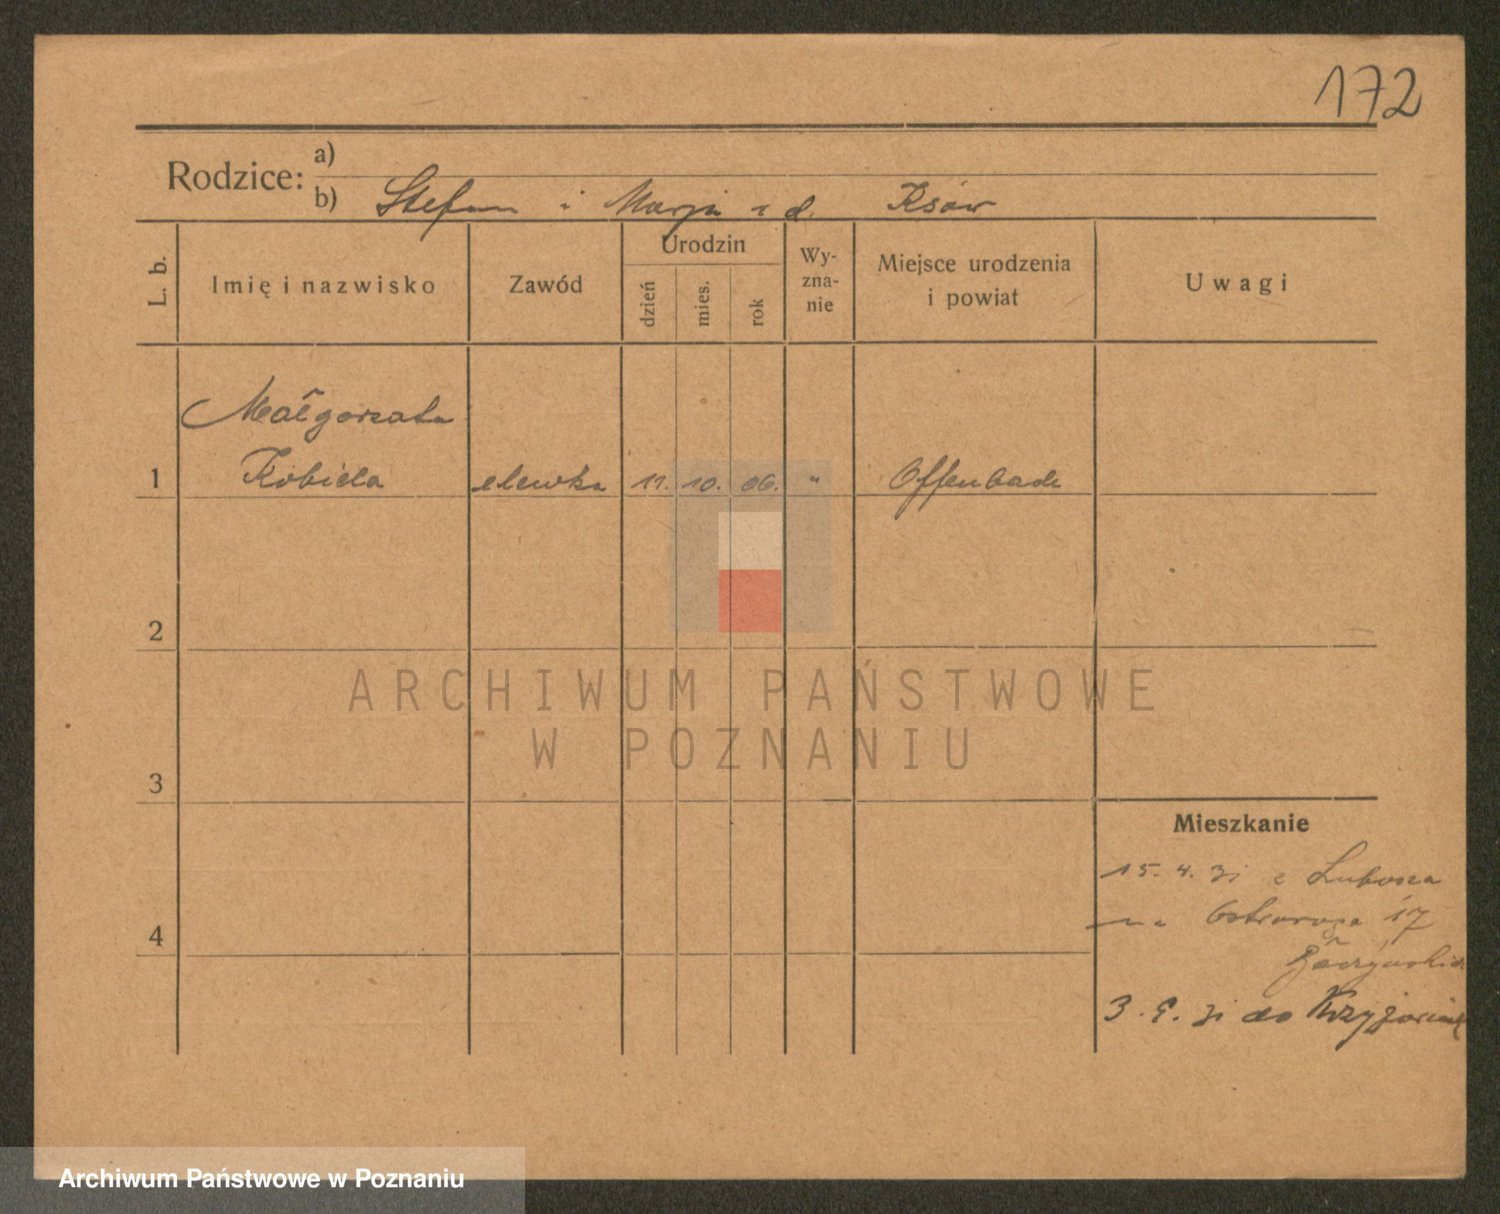 172
Rodzice:
a)
b) Stefan i Marja z d. Ksów
L. b.
Imię i nazwisko
Zawód
Urodzin
dzień
mies.
rok
Wy-
zna-
nie
Miejsce urodzenia
i powiat
Uwagi
Małgorzata
1 Kobiela elewka 11. 10. 06. " Offenbach
2
3
4
ARCHIWUM PAŃSTWOWE
W POZNANIU
Mieszkanie
15. 4. 31 z Lubosza
na Ostroroga 17
3. 9. 31 do
Archiwum Państwowe w Poznaniu